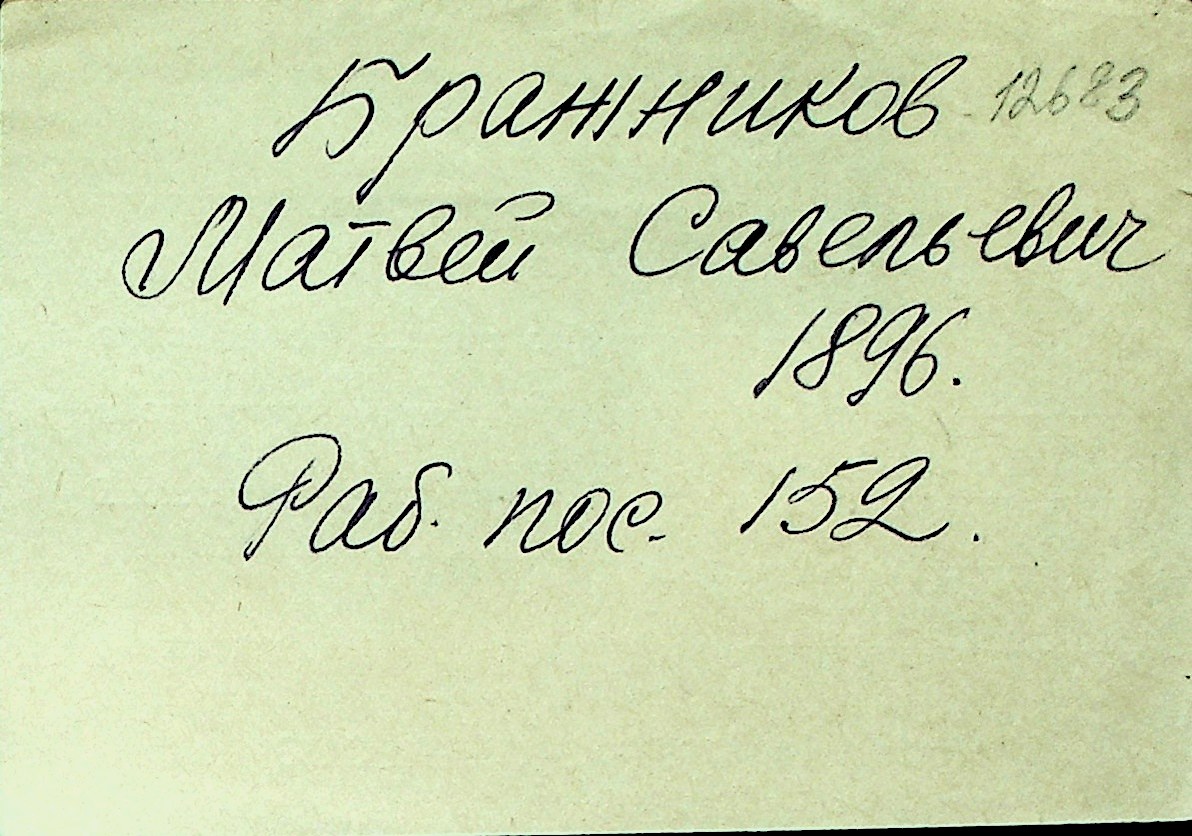 Бражников 12683
Матвей Савельевич
1896.
Раб. пос. 152.